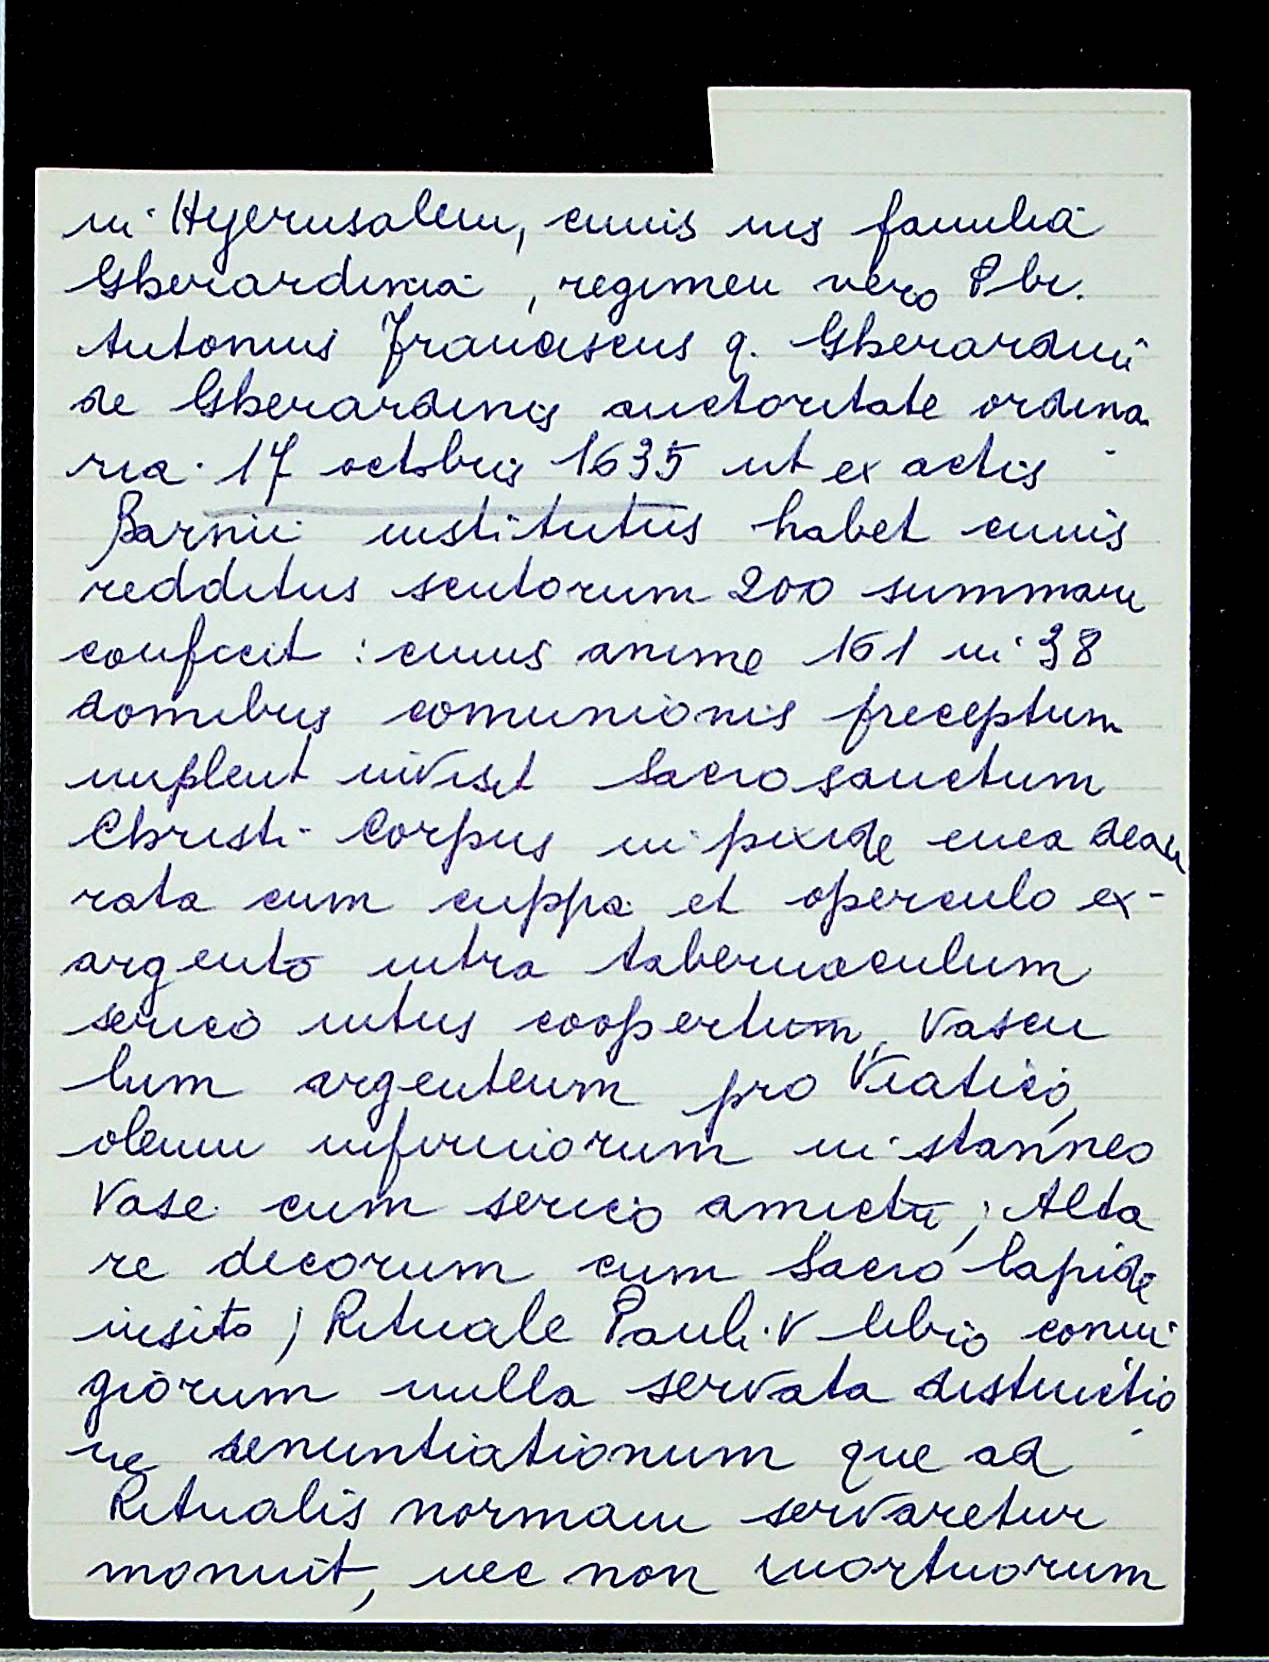 in Hyerusalem, cuius ius familia
Gherardinia, regimen vero Pbr.
Antonius Franciscus q. Gherardini
de Gherardinis auctoritate ordina
ria 17 octobris 1635 ut ex actis
Barnii institutus habet cuius
redditus scutorum 200 summam
conficit : cuius anime 161 in 38
domibus comunionis preceptum
implent invisit Sacrosanctum
Christi Corpus in pixide enea deau
rata cum cuppa et operculo ex
argento intra tabernaculum
serico intus coopertum, Vascu
lum argenteum pro Viatico,
oleum infirmorum in stanneo
Vase cum serico amictu ; Alta
re decorum cum Sacro lapide
insito ; Rituale Pauli V libro coniu
giorum nulla servata distinctio
ne denuntiationum que ad
Ritualis normam servaretur
monuit, nec non mortuorum